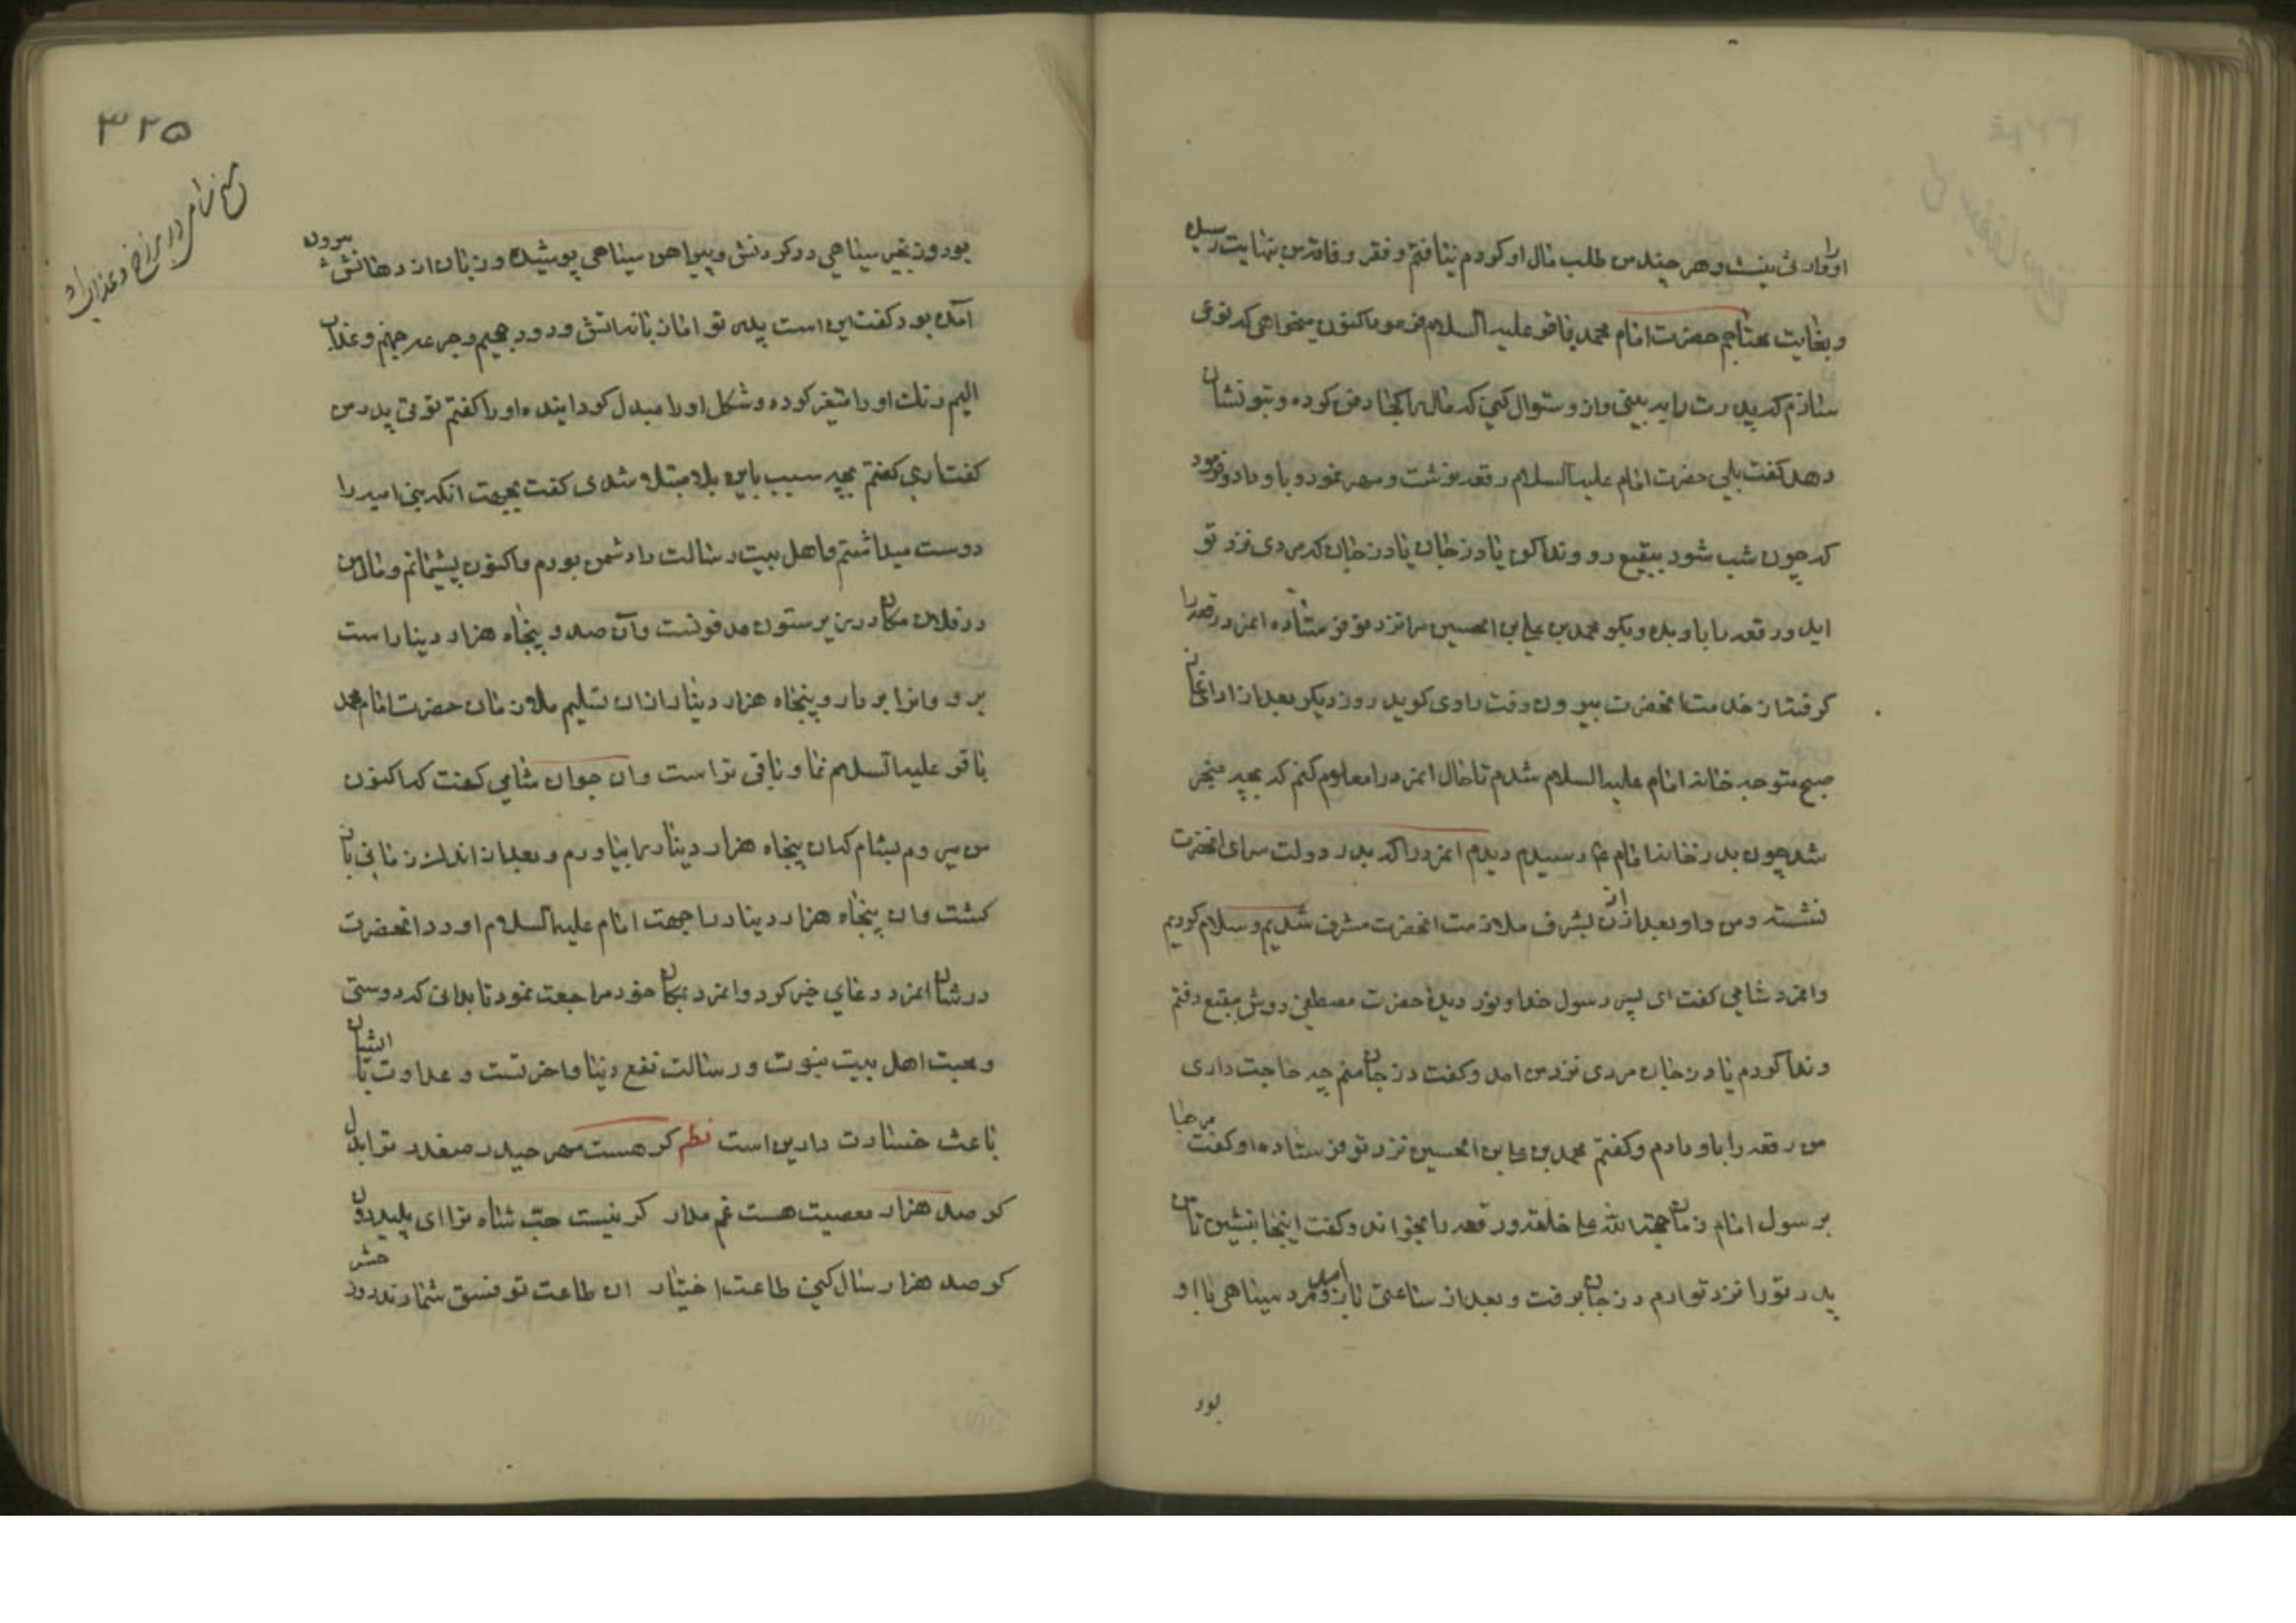 اورا وارثی نیست و هر چند من طلب مال او کردم نیافتم و فقر و فاقه من بنهایت رسیده
و بغایت محتاجم حضرت امام محمد باقر علیه السلام فرمود اکنون میخواهی که نوعی
سازم که پدرت را به بینی و ازو سئوال کنی که مال را کجا دفن کرده و بتو نشان
دهد گفت بلی حضرت امام علیه السلام رقعه نوشت و مهر نمود و باو داد و فرمود
که چون شب شود ببقیع رو و ندا کن یا درزجان یا درزجان که مردی نزد تو
اید و رقعه را باو بده و بگو محمد بن علی بن الحسین مرا نزد تو فرستاده انمرد رقعه را
گرفت از خدمت انحضرت بیرون رفت راوی گوید روز دیگر بعد از ادای نماز
صبح متوجه خانه امام علیه السلام شدم تا حال انمرد را معلوم کنم که بچه منجر
شد چون بدر خانه امام ع رسیدم دیدم انمرد را که بدر دولت سرای انحضرت
نشسته و من و او بعد از ان بشرف ملازمت انحضرت مشرف شدیم و سلام کردیم
و انمرد شامی گفت ای پسر رسول خدا و نور دیدهٔ حضرت مصطفی دوش ببقیع رفتم
و ندا کردم یا درزجان مردی نزد من امد و گفت درزجان منم چه حاجت داری
من رقعه را باو دادم و گفتم محمد بن علی بن الحسین نزد تو فرستاده او گفت مرحبا
برسول امام زمان حجة الله علی خلقه و رقعه را بخواند و گفت اینجا بنشین تا من
پدر تو را نزد تو ارم درزجان برفت و بعد از ساعتی باز امد و مرد سیاهی با او
بود
۳۲۵
بود و زنجیر سیاهی در گردنش و پیراهن سیاهی پوشیده و زبان از دهانش بیرون
آمده بود گفت این است پدر تو اما زبانه اتش و دود جحیم و جرعه جهنم و عذاب
الیم رنک او را متغیر کرده و شکل او را مبدل گردانیده او را گفتم توئی پدر من
گفت اری گفتم بچه سبب باین بلا مبتلا شدی گفت بجهت انکه بنی امیه را
دوست میداشتم و اهل بیت رسالت را دشمن بودم و اکنون پشیمانم و مال من
در فلان مکان در زیر ستون مدفونست و آن صد و پنجاه هزار دینار است
برو و انرا بردار و پنجاه هزار دینار ازان تسلیم ملازمان حضرت امام محمد
باقر علیه السلام نما و باقی تراست و ان جوان شامی گفت که اکنون
من میروم بشام که ان پنجاه هزار دینار را بیاورم و بعد از اندک زمانی باز
گشت و ان پنجاه هزار دینار را جهت امام علیه السلام اورد انحضرت
در شان انمرد دعای خیر کرد و انمرد بمکان خود مراجعت نمود تا بدانی که دوستی
و محبت اهل بیت نبوت و رسالت نفع دنیا و اخرتست و عداوت با ایشان
باعث خسارت دارین است نظم گر هست مهر حیدر صفدر ترا بدل
گر صد هزار معصیت هست غم مدار گر نیست حب شاه ترا ای پلید دون
گر صد هزار سال کنی طاعت اختیار ان طاعت تو فسق شمارند روز حشر